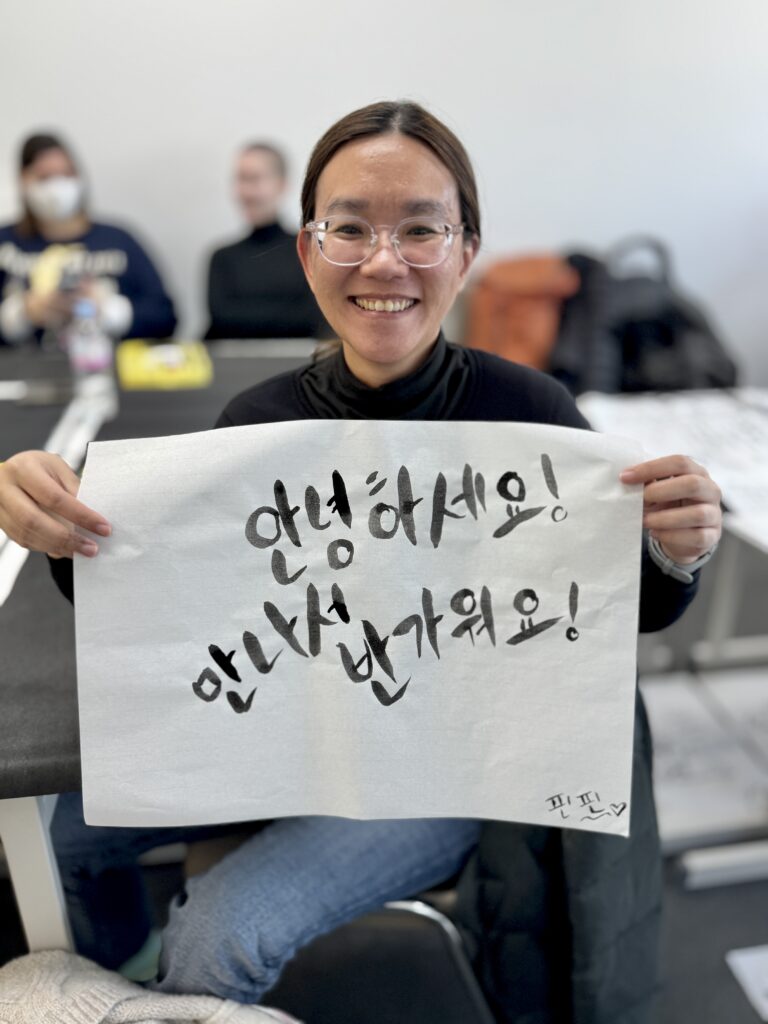 안녕하세요!
만나서 반가워요!
핀핀♡